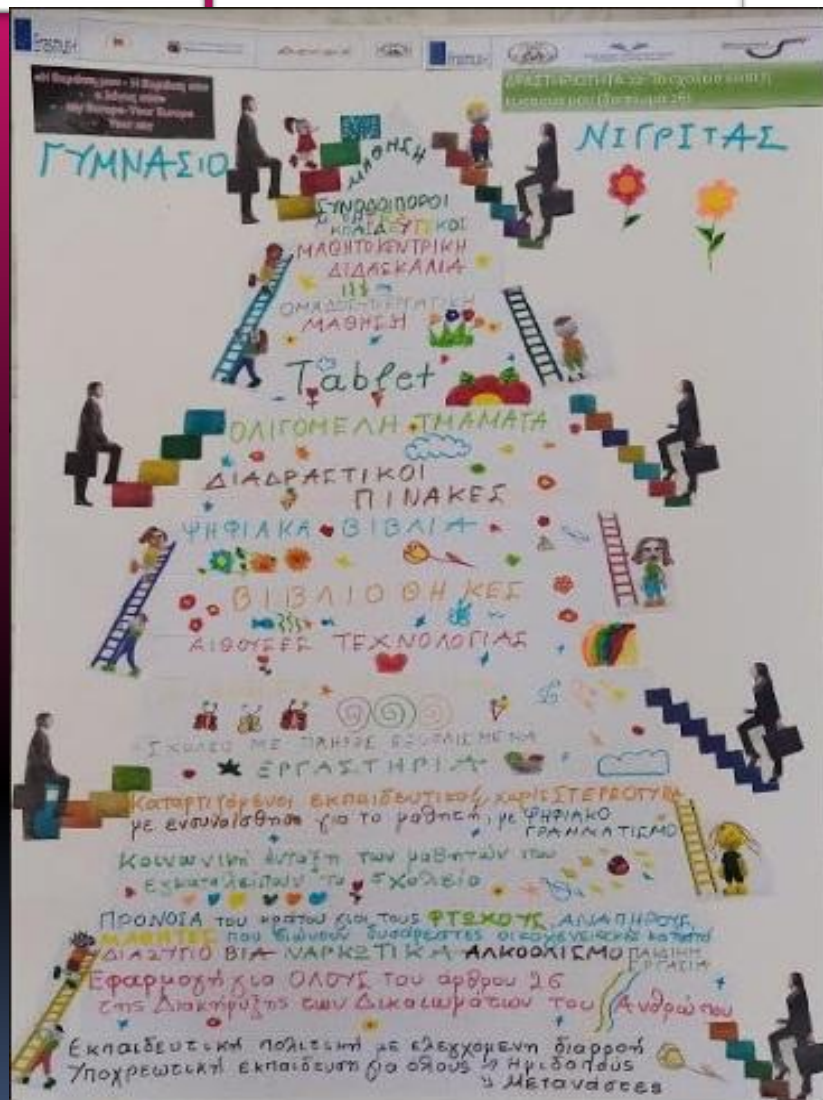 Erasmus+
Erasmus+
«Η Ευρώπη μου - Η Ευρώπη σου
My Europe-Your Europe
ΔΡΑΣΤΗΡΙΟΤΗΤΑ 22- Το σχολείο
ΓΥΜΝΑΣΙΟ
ΝΙΓΡΙΤΑΣ
ΜΑΘΗΣΗ
ΣΥΝΟΔΟΙΠΟΡΟΙ
ΕΚΠΑΙΔΕΥΤΙΚΟΙ
ΜΑΘΗΤΟΚΕΝΤΡΙΚΗ
ΔΙΔΑΣΚΑΛΙΑ
ΜΑΘΗΣΗ
Tablet
ΟΛΙΓΟΜΕΛΗ ΤΜΑΜΑΤΑ
ΔΙΑΔΡΑΣΤΙΚΟΙ
ΠΙΝΑΚΕΣ
ΨΗΦΙΑΚΑ ΒΙΒΛΙΑ
ΒΙΒΛΙΟΘΗΚΕΣ
ΑΙΘΟΥΣΕΣ ΤΕΧΝΟΛΟΓΙΑΣ
ΣΧΟΛΕΙΟ ΜΕ ΠΛΗΡΩΣ ΕΞΟΠΛΙΣΜΕΝΑ
ΕΡΓΑΣΤΗΡΙΑ
Καταρτιζόμενοι εκπαιδευτικοί, χωρίς ΣΤΕΡΕΟΤΥΠΑ
με ενσυναίσθηση για το μαθητή, με ΨΗΦΙΑΚΟ
ΓΡΑΜΜΑΤΙΣΜΟ
Κοινωνική ένταξη των μαθητών που
εγκαταλείπουν το Σχολείο
ΠΡΟΝΟΙΑ του κράτου για τους ΦΤΩΧΟΥΣ, ΑΝΑΠΗΡΟΥΣ
ΜΑΘΗΤΕΣ που βιώνουν δυσάρεστες οικογενειακές
ΔΙΑΖΥΓΙΟ ΒΙΑ ΝΑΡΚΩΤΙΚΑ ΑΛΚΟΟΛΙΣΜΟ ΠΑΙΔΙΚΗ
ΕΡΓΑΣΙΑ
Εφαρμογή για ΟΛΟΥΣ του άρθρου 26
της Διακήρυξης των Δικαιωμάτων του Ανθρώπου
Εκπαιδευτική πολιτική με ελεγχόμενη διαρροή
Υποχρεωτική εκπαίδευση για όλους → Ημεδαπούς
→ Μετανάστες